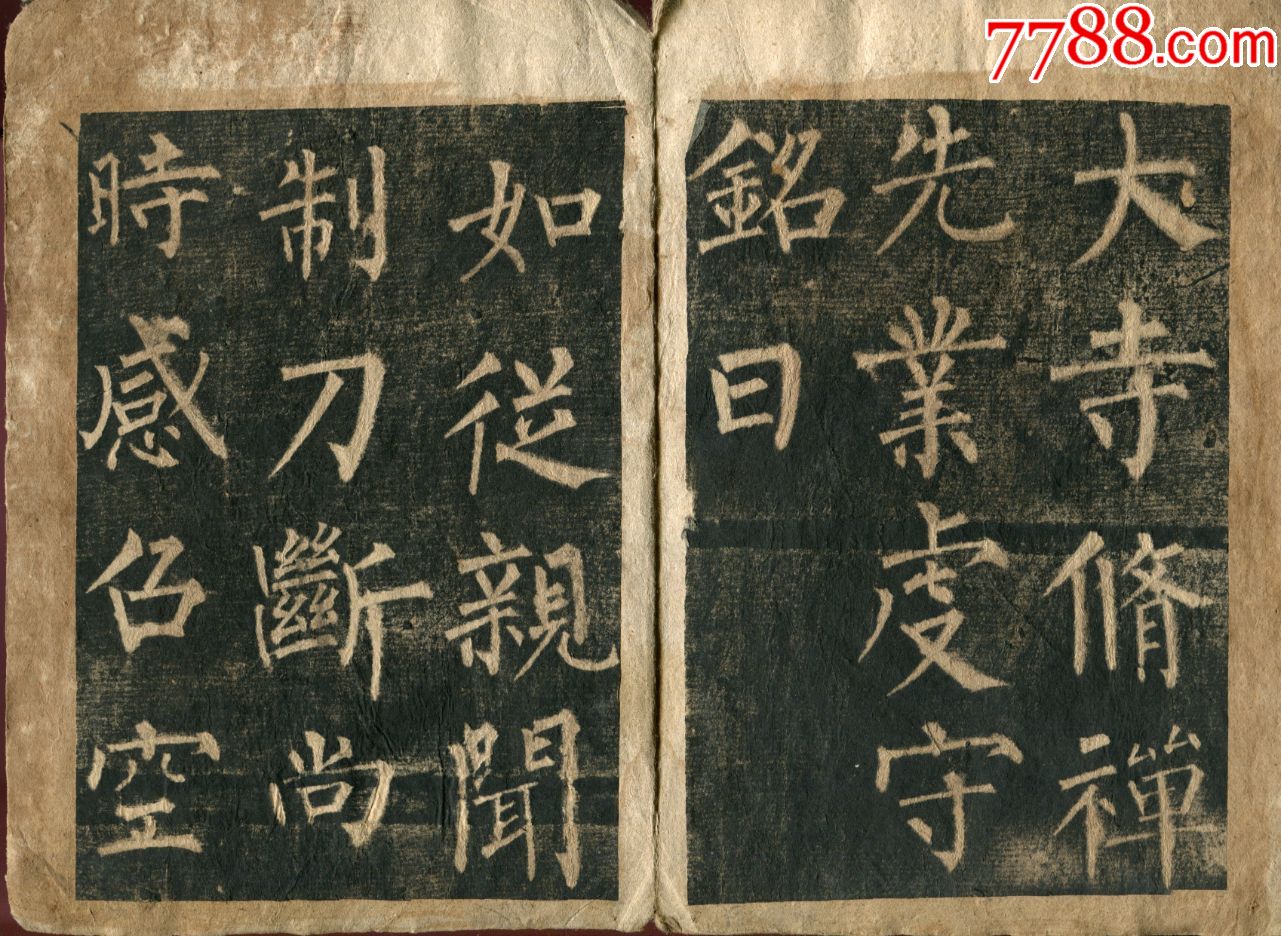 7788.com
大寺脩禪
先業虔守
銘曰
如從親聞
制刀斷尚
時感召空